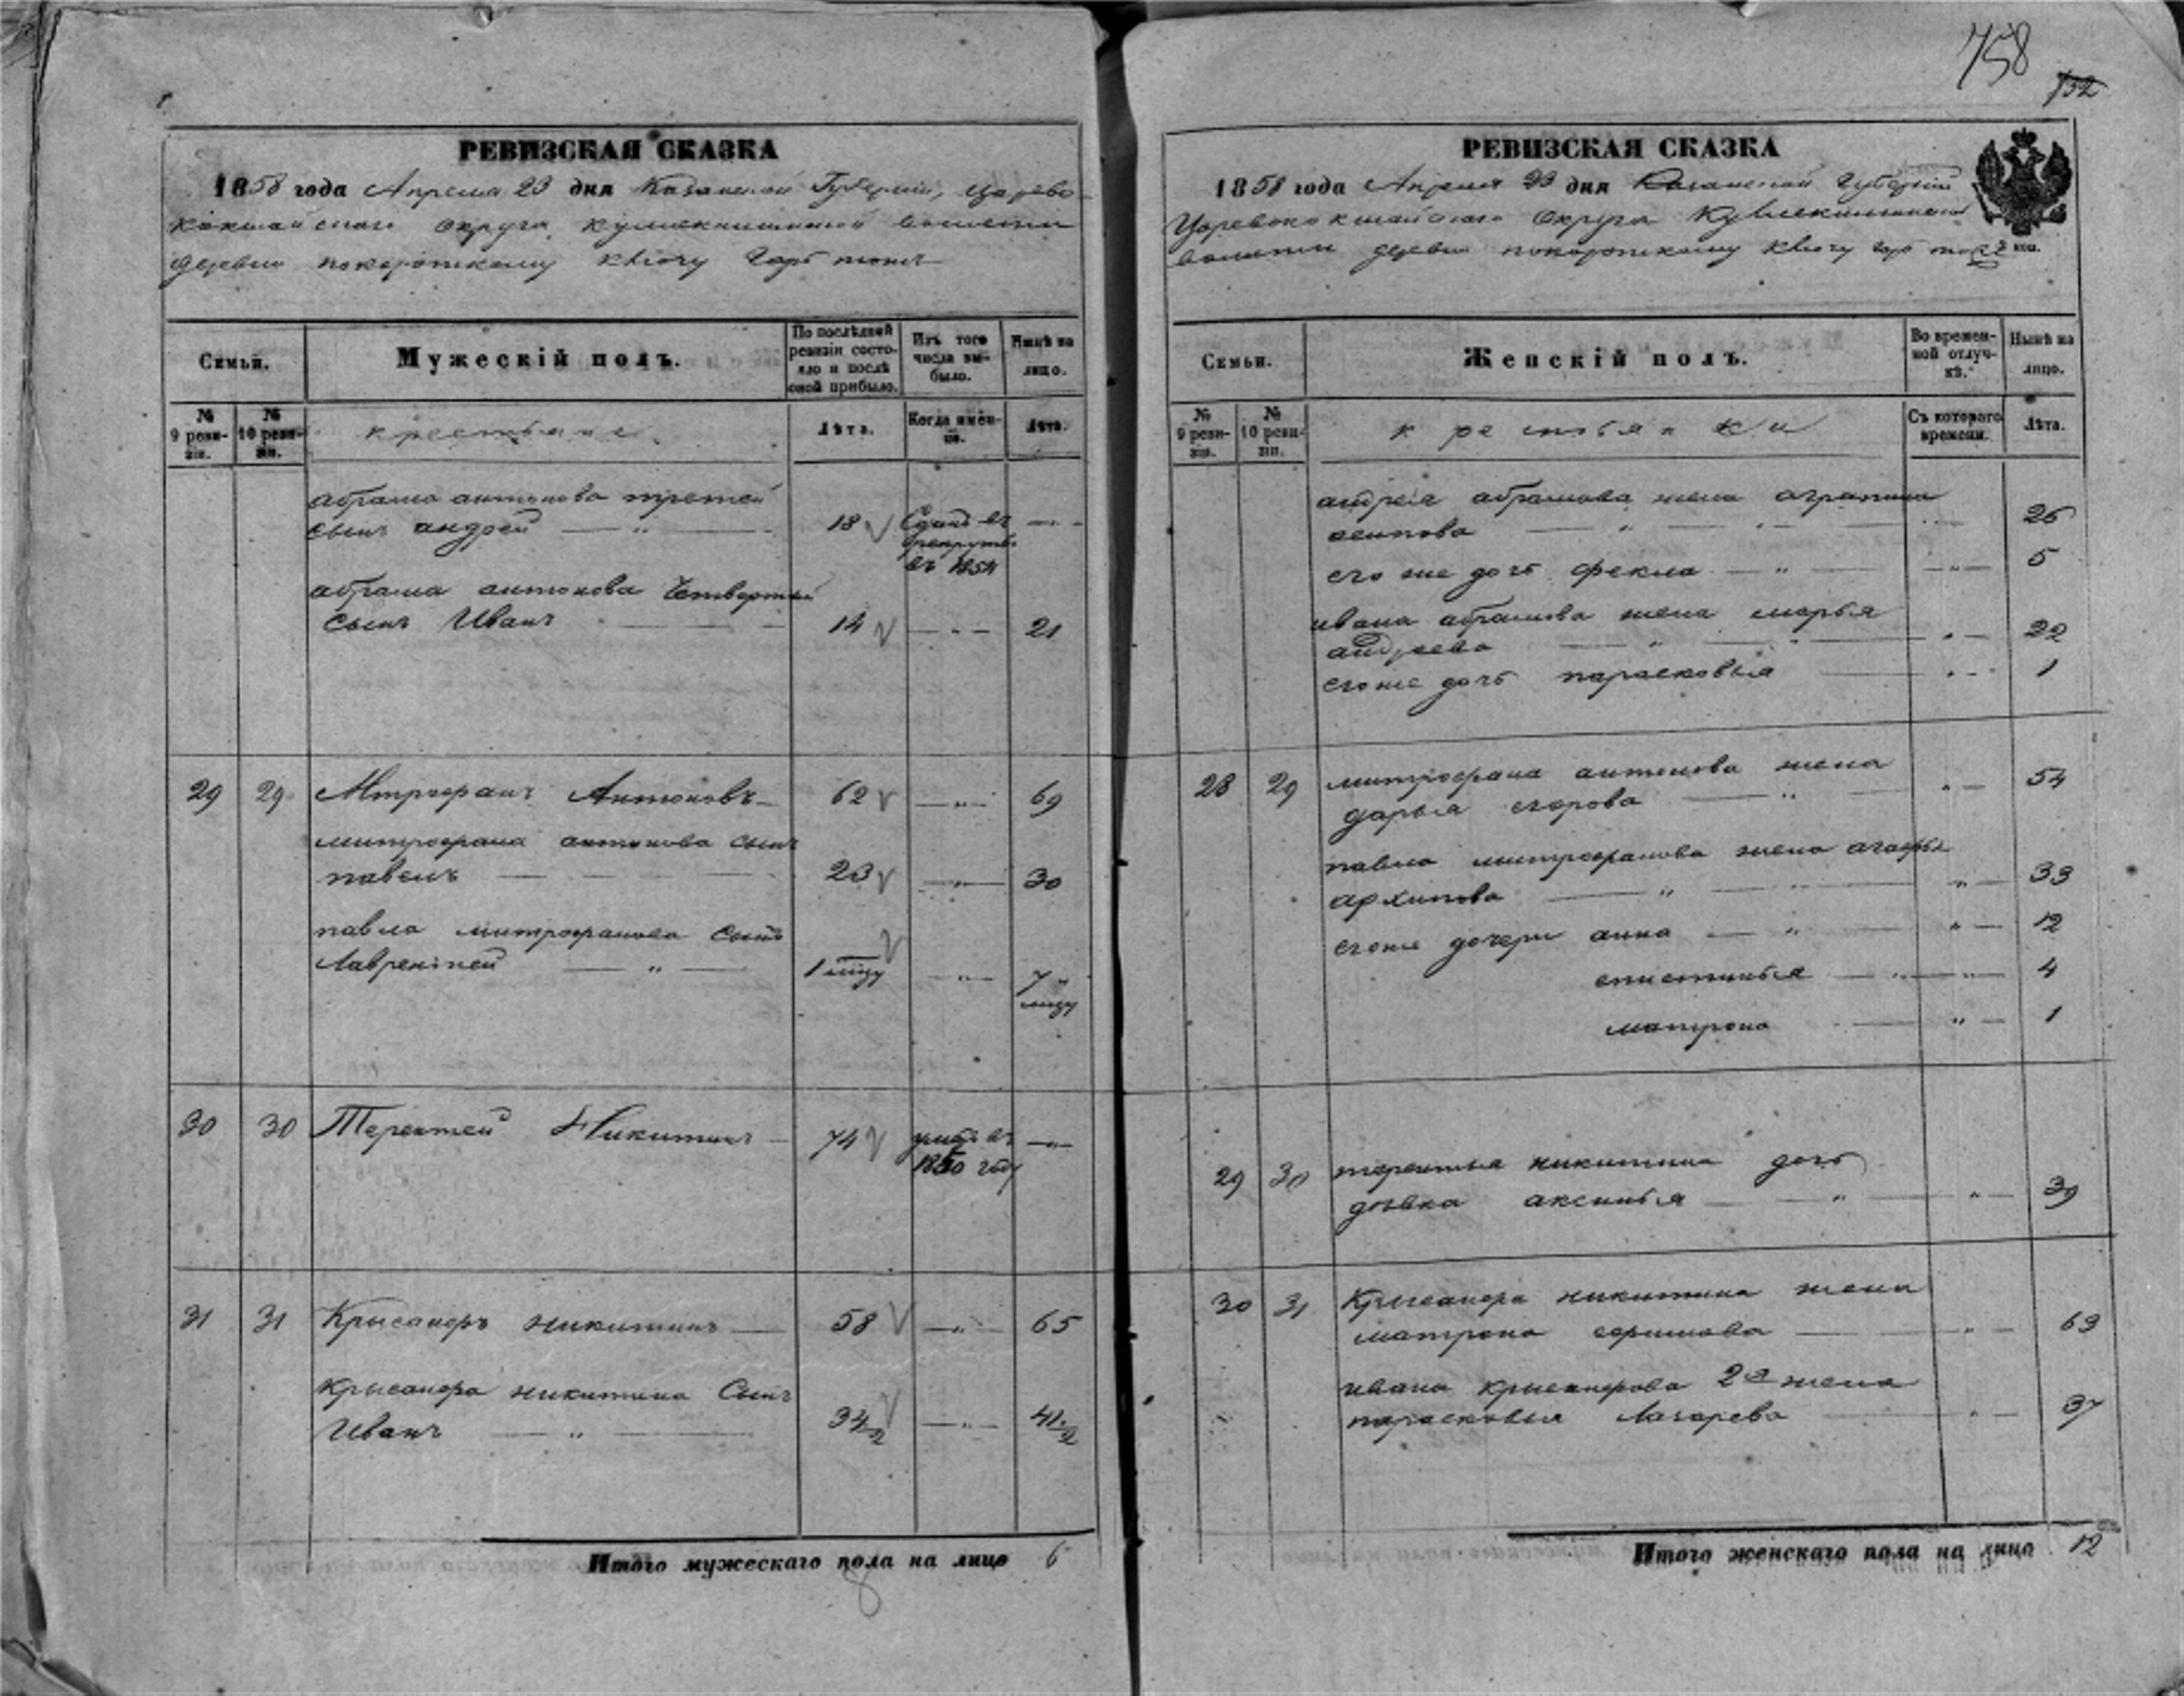 758
752
РЕВИЗСКАЯ СКАЗКА
1858 года Апреля 23 дня Казанской Губернии, Царево-
кокшайскаго округа кулмекшинской волости
деревни покоропскому ключу
Семьи.
Мужескій полъ.
По послѣдней ревизіи состояло и послѣ оной прибыло.
Изъ того числа выбыло.
Нынѣ на лицо.
№ 9 ревизіи.
№ 10 ревизіи.
крестьяне
Лѣта.
Когда именно.
Лѣта.
абрама антонова третей
сынъ андрей — " — 18 Сданъ въ рекруты въ 1854 — " —
абрама антонова Четвертый
сынъ Иванъ 14 — " — 21
29 29 Мтрофанъ Антоновъ 62 — " — 69
митрофана антонова сынъ
павелъ 23 — " — 30
павла митрофанова сынъ
Лаврентей — " — 1 мцу — " — 7 мцу
30 30 Терентей Никитинъ 74 умеръ въ 1850 году — " —
31 31 Крысанфъ никитинъ 58 — " — 65
Крысанфа никитина Сынъ
Иванъ — " — 34/2 — " — 41/2
Итого мужескаго пола на лицо 6
8
РЕВИЗСКАЯ СКАЗКА
1858 года Апреля 23 дня Казанской Губерніи
Царевококшайскаго Округа
волости деревни покоропскому ключу
2 коп.
Семьи.
Женскій полъ.
Во временной отлучкѣ.
Нынѣ на лицо.
№ 9 ревизіи.
№ 10 ревизіи.
крестьянки
Съ котораго времени.
Лѣта.
андрея абрамова жена аграпина
осипова — " — 26
его же дочь фекла — " — 5
ивана абрамова жена марья
андреева — " — 22
егоже дочь парасковья 1
28 29 митрофана антонова жена
дарья егорова — " — 54
павла митрофанова жена агафья
архипова — " — 33
егоже дочери анна — " — 12
епистинья — " — 4
матрона — " — 1
29 30 терентья никитина дочь
дѣвка аксинья — " — 39
30 31 Крысанфа никитина жена
матрона 63
ивана крысанфова 2я жена
парасковья Лазарева 37
Итого женскаго пола на лицо 12